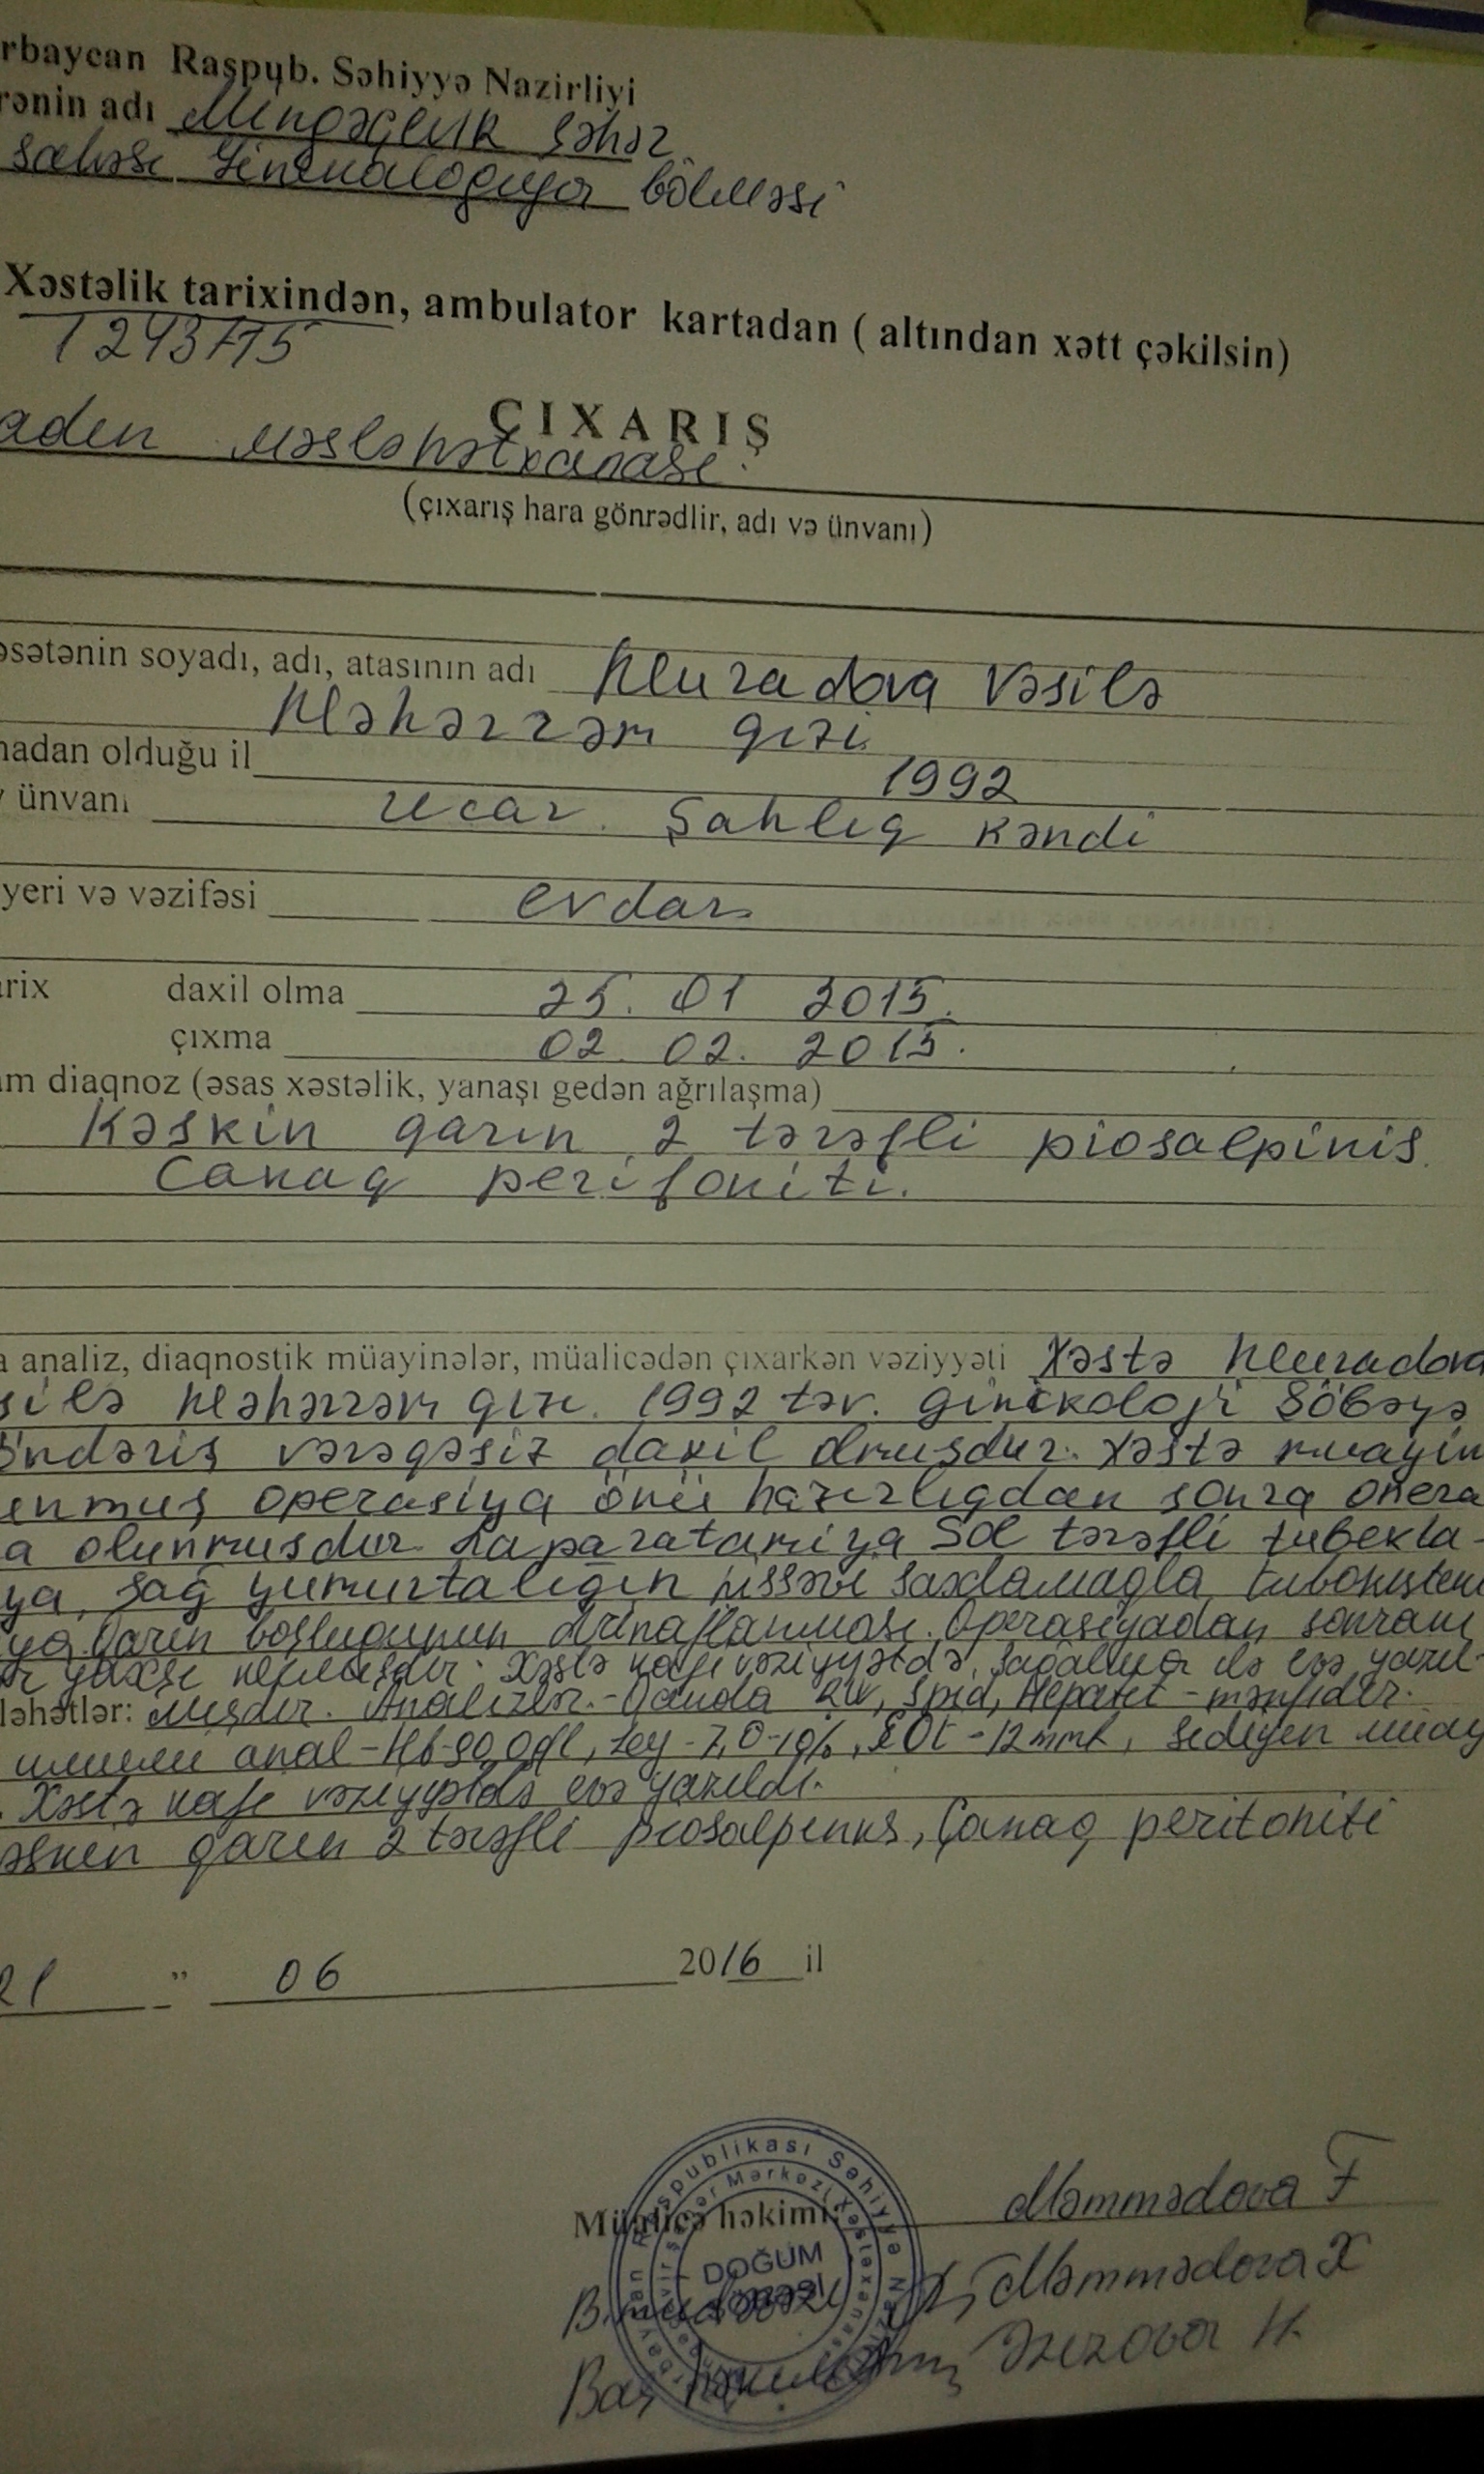 rbaycan Raspub. Səhiyyə Nazirliyi
rənin adı Mingəçevir şəhər
sahəsi Ginekalogiya bölməsi
Xəstəlik tarixindən, ambulator kartadan ( altından xətt çəkilsin)
1243/15
ÇIXARIŞ
adın məsləhətxanası.
(çıxarış hara gönrədlir, adı və ünvanı)
əsətənin soyadı, adı, atasının adı Muradova Vəsilə
Məhərrəm qızı
nadan olduğu il 1992
ünvanı Ucar. Şahlıq kəndi
yeri və vəzifəsi evdar
arix daxil olma 25. 01 2015.
çıxma 02. 02. 2015.
am diaqnoz (əsas xəstəlik, yanaşı gedən ağrılaşma)
Kəskin qarın 2 tərəfli piosalpinis
Canaq peritoniti.
a analiz, diaqnostik müayinələr, müalicədən çıxarkən vəziyyəti Xəstə Muradova
silə Məhərrəm qızı. 1992 təv. ginikoloji şöbəyə
öndəriş vərəqəsiz daxil olmuşdur. Xəstə muayin
unmuş operasiya önü hazırlıqdan sonra opera
a olunmuşdur. Laparatamiya Sol tərəfli tubekta-
ya, sağ yumurtalığın hissəvi saxlamaqla,
ya Qarın boşluğunun drinajlanması. Operasiyadan sonrakı
ər yaxşı keçmişdir. Xəstə kafi vəziyyətdə, sağalma ilə evə yazıl-
ləhətlər: mışdır. Analizlər.- Qanda RW, Spid, Hepatit - mənfidir.
ümumi anal - Hb-90,0g/l, Ley - 7,0-10%, EÖt - 12mml, sediyen muay
. Xəstə kafi vəziyyətdə evə yazıldı.
əskin qarın 2 tərəfli piosalpinks, Çanaq peritoniti
21 " 06 2016 il
Müalicə həkimi: Məmmədova F
B.mama Məmmədova X
Baş həkim Əzizova H.
Respublikası Səhiyyə
Mərkəzi Xəstəxanası
DOĞUM
ŞÖBƏSİ